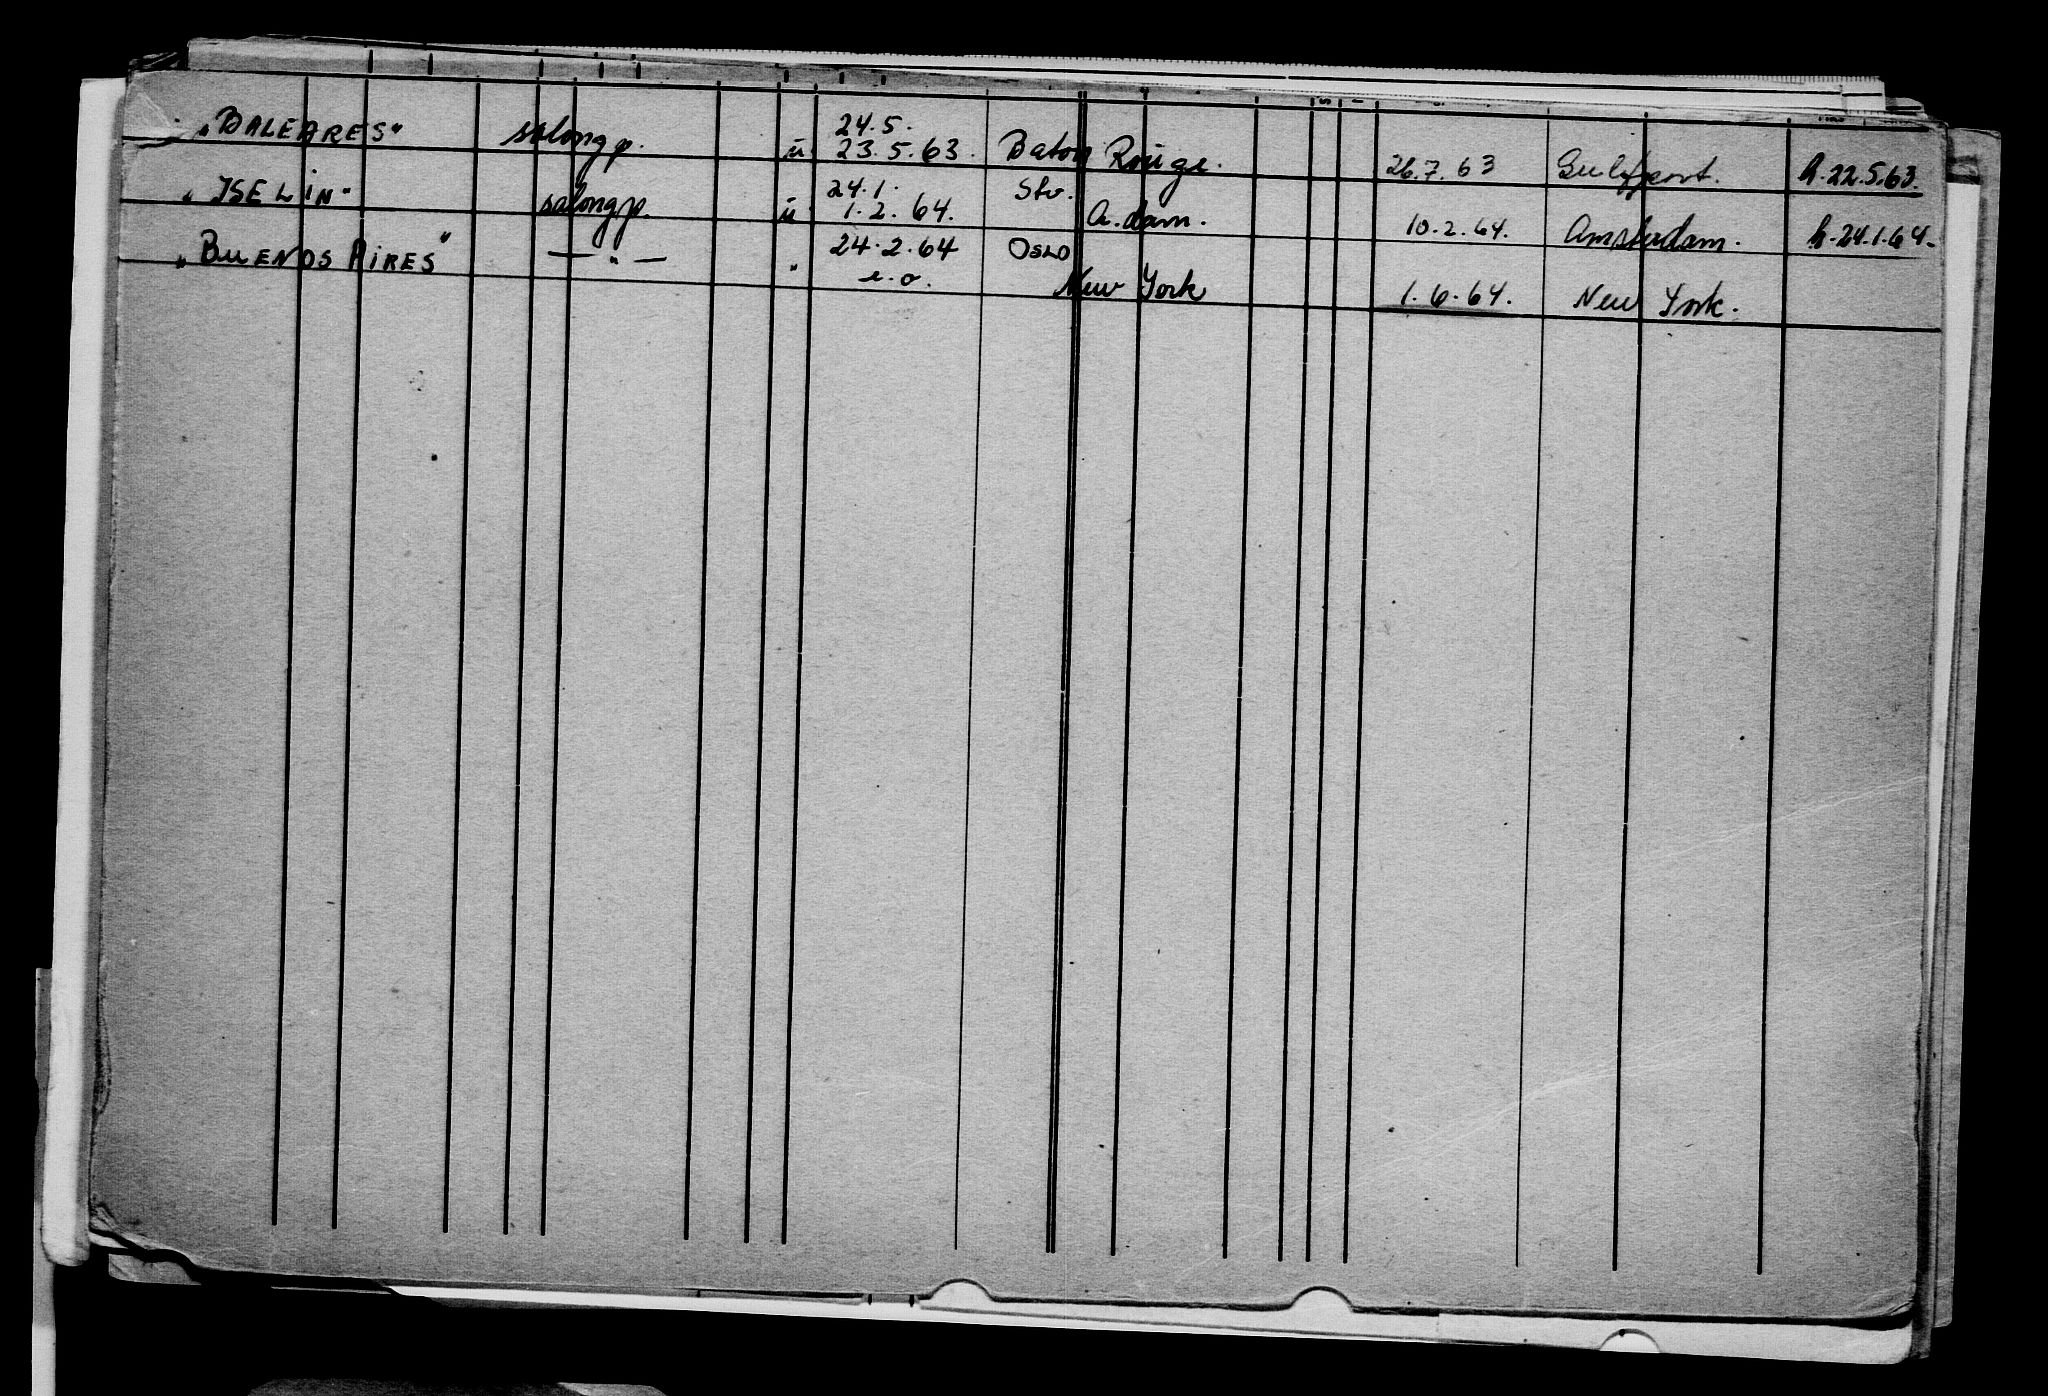 24.5.
„BALEARES“ salongp. u. 23.5.63. Baton Rouge. 26.7.63 Gulfport. h.22.5.63.
24.1. Stv.
„ISELIN“ salongp. u 1.2.64. A.dam. 10.2.64. Amsterdam. h.24.1.64.
24.2.64 OSLO
„BUENOS AIRES“ — " — " e.o. New York 1.6.64. New York.